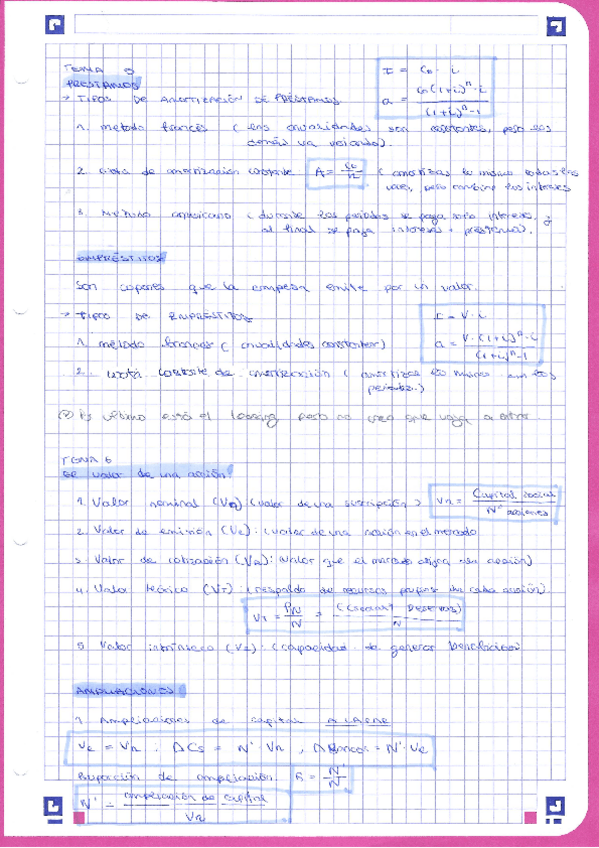 TEMA 5
I = C₀ · i
PRÉSTAMOS
a = C₀(1+i)ⁿ·i / (1+i)ⁿ-1
→ TIPOS DE AMORTIZACIÓN DE PRÉSTAMOS
1. método francés ( las anualidades son constantes, pero los
demás va variando).
2. cuota de amortización constante A = C₀/n ( amortizas lo mismo todas las
veces, pero cambian los intereses
3. Método americano ( durante los periodos se paga solo intereses, y
al final se paga intereses + préstamo).
EMPRÉSTITOS
Son cupones que la empresa emite por un valor.
→ TIPOS DE EMPRÉSTITOS
I = V · i
1. método francés ( anualidades constantes)
a = V·(1+i)ⁿ·i / (1+i)ⁿ-1
2. cuota constante de amortización ( amortizas lo mismo en los
periodos.)
último está el leasing pero no creo que vaya a entrar.
TEMA 6
El valor de una acción
1. Valor nominal (Vn) (valor de una suscripción) Vn = Capital social / Nº acciones
2. Valor de emisión (Ve): (valor de una acción en el mercado
3. Valor de cotización : (valor que el mercado asigna acción)
4. Valor teórico (VT): (respaldo de recursos propios de cada acción).
VT = PN/N =
5. Valor intrínseco : (capacidad de generar beneficios)
AMPLIACIONES
1. Ampliaciones de capital A LA PAR
Ve = Vn , ΔCs = N' · Vn , ΔBancos = N' · Ve
Proporción de ampliación
N' = ampliación de capital / Vn